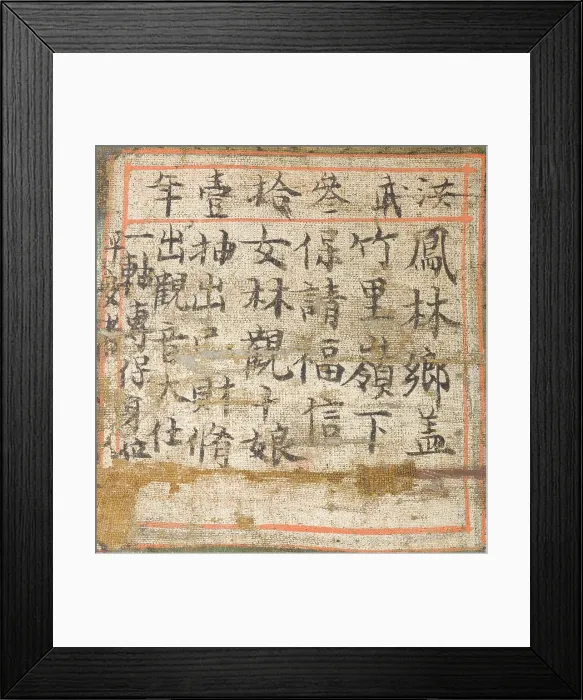 洪武叄拾壹年
鳳林鄉盖
竹里嶺下
保請福信
女林觀十娘
抽出口財脩
出觀音大仕
一軸專保身位
平安